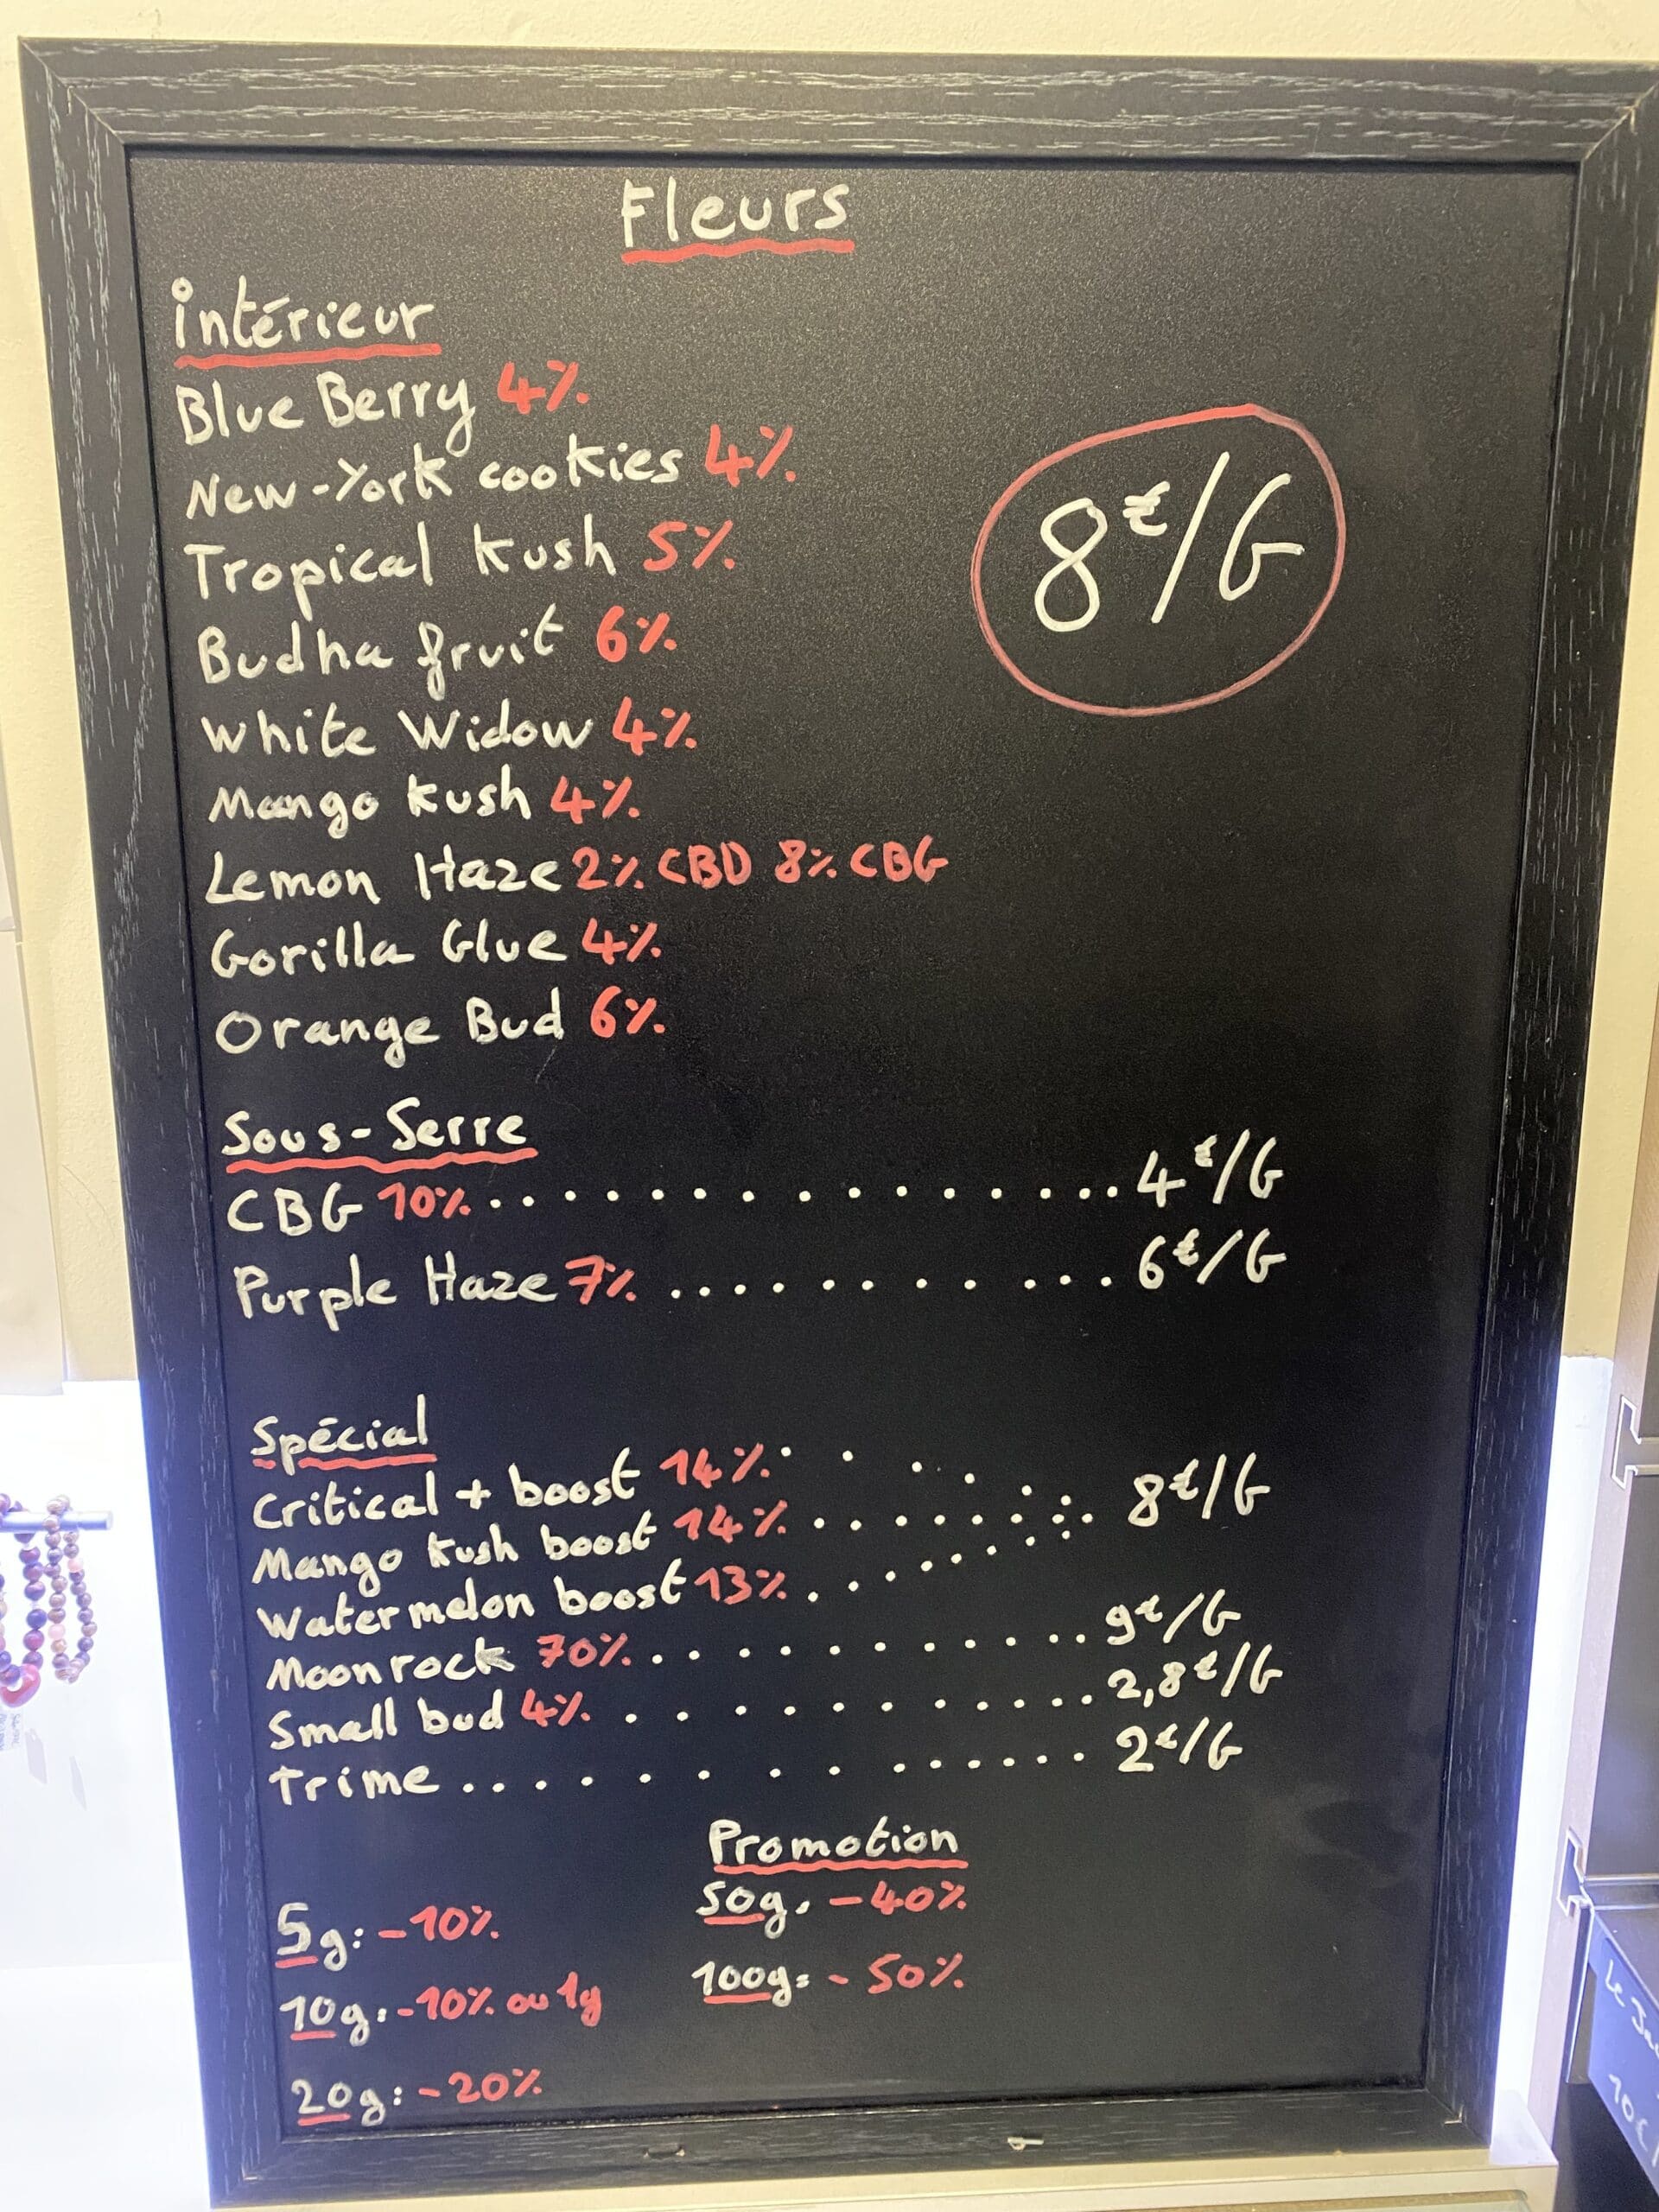 Fleurs
intérieur
Blue Berry 4%
New-York cookies 4%
Tropical kush 5%
Budha fruit 6%
White Widow 4%
Mango kush 4%
Lemon Haze 2% CBD 8% CBG
Gorilla Glue 4%
Orange Bud 6%
8€/G
Sous-Serre
CBG 10%..................4€/G
Purple Haze 7%..............6€/G
Spécial
Critical + boost 14%
Mango kush boost 14%
Watermelon boost 13%
8€/G
Moonrock 70%..............9€/G
Small bud 4%.............2,8€/G
Trime..............2€/G
Promotion
5g: -10%
10g: -10% ou 1g
20g: -20%
50g. -40%
100g: - 50%
10€